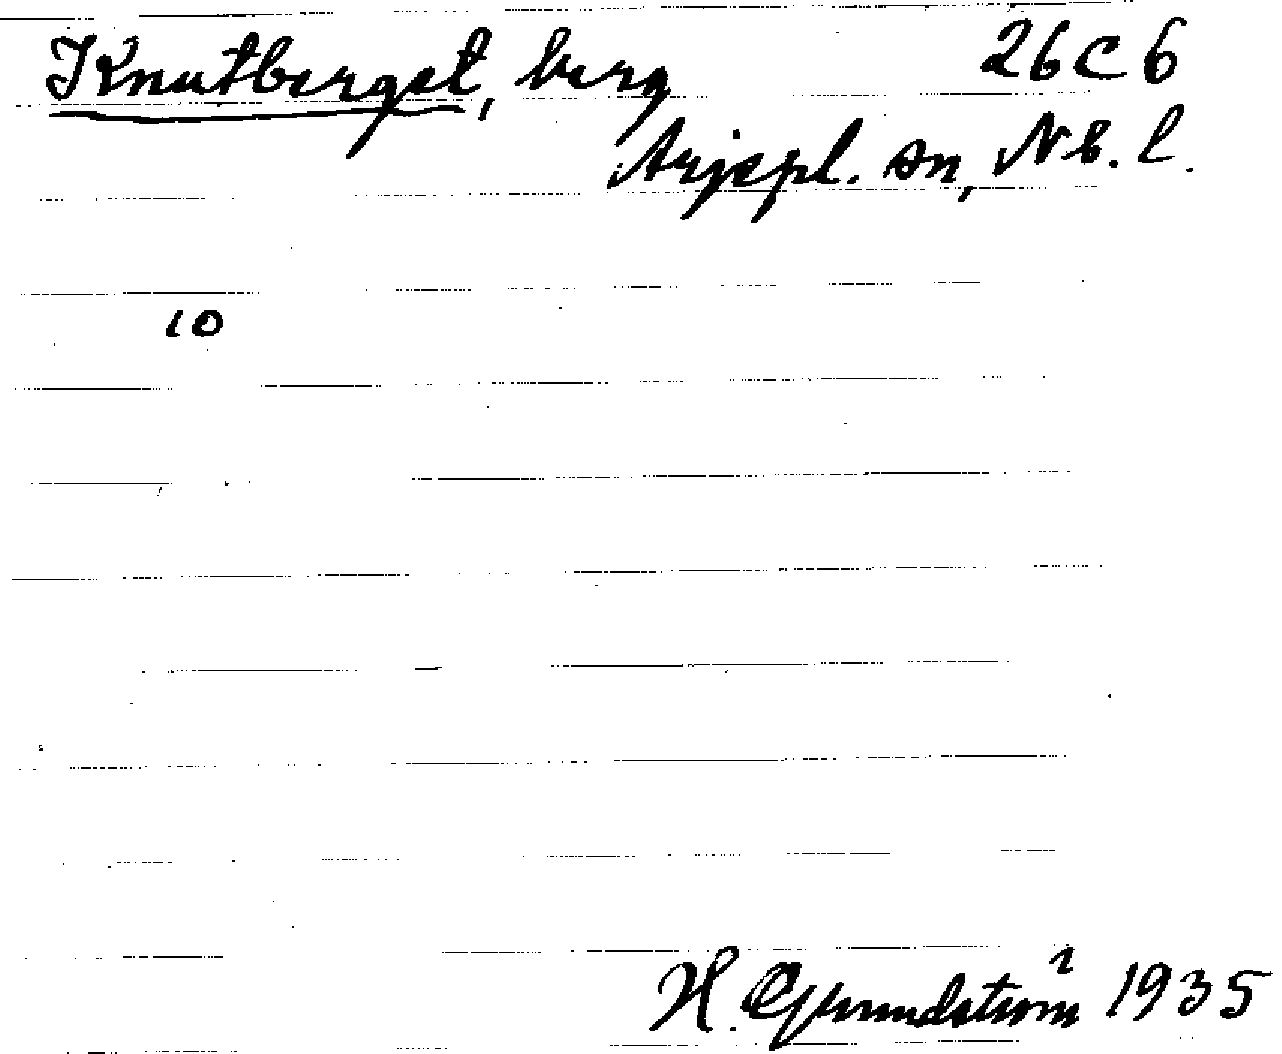 Knutberget, berg 26C6
Arjepl. sn, Nb. l.
10
H. Grundström 1935